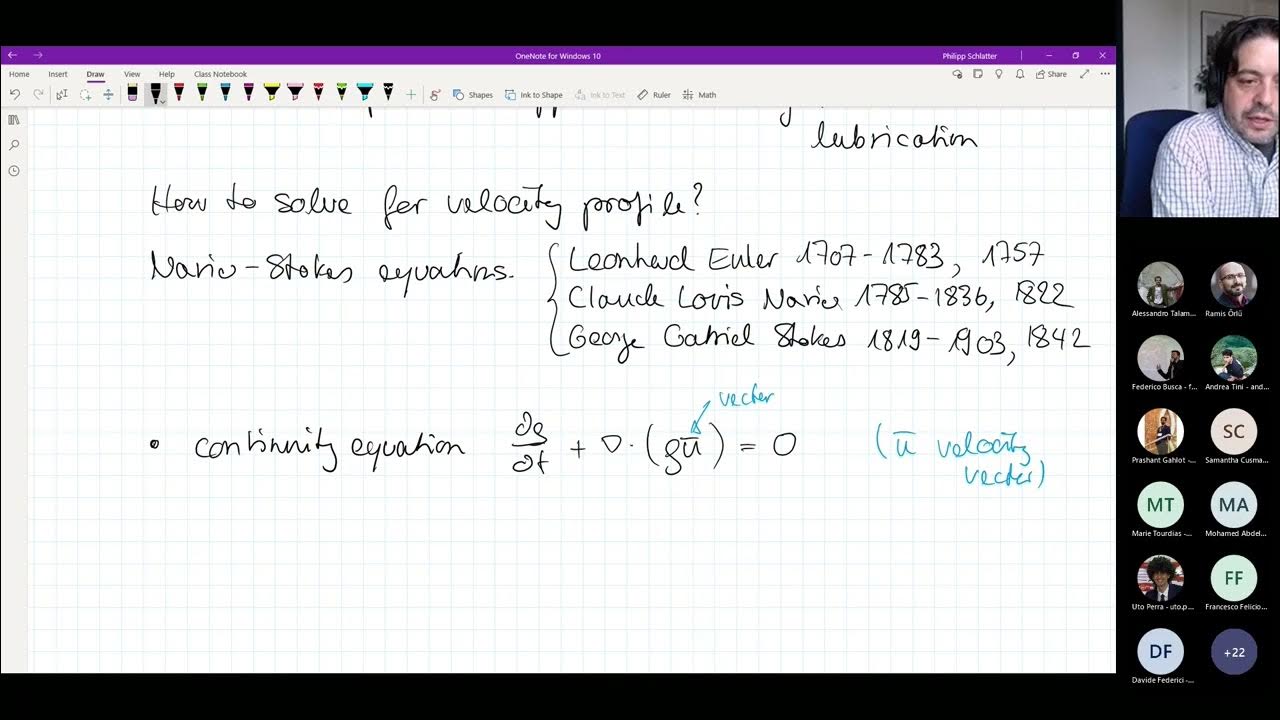 OneNote for Windows 10
Philipp Schlatter
Home Insert Draw View Help Class Notebook
Share
Shapes Ink to Shape Ink to Text Ruler Math
lubrication
How to solve for velocity profile?
Navier-Stokes equations.
Leonhard Euler 1707-1783, 1757
Claude Louis Navier 1785-1836, 1822
George Gabriel Stokes 1819-1903, 1842
vector
• continuity equation ∂ρ/∂t + ∇·(ρū) = 0
(ū velocity
vector)
Alessandro Talam...
Ramis Örlü
Federico Busca - f...
Andrea Tini - and...
Prashant Gahlot -...
SC
Samantha Cusma...
MT
Marie Tourdias -...
MA
Mohamed Abdel...
Uto Perra - uto.p...
FF
Francesco Felicio...
DF
Davide Federici -...
+22